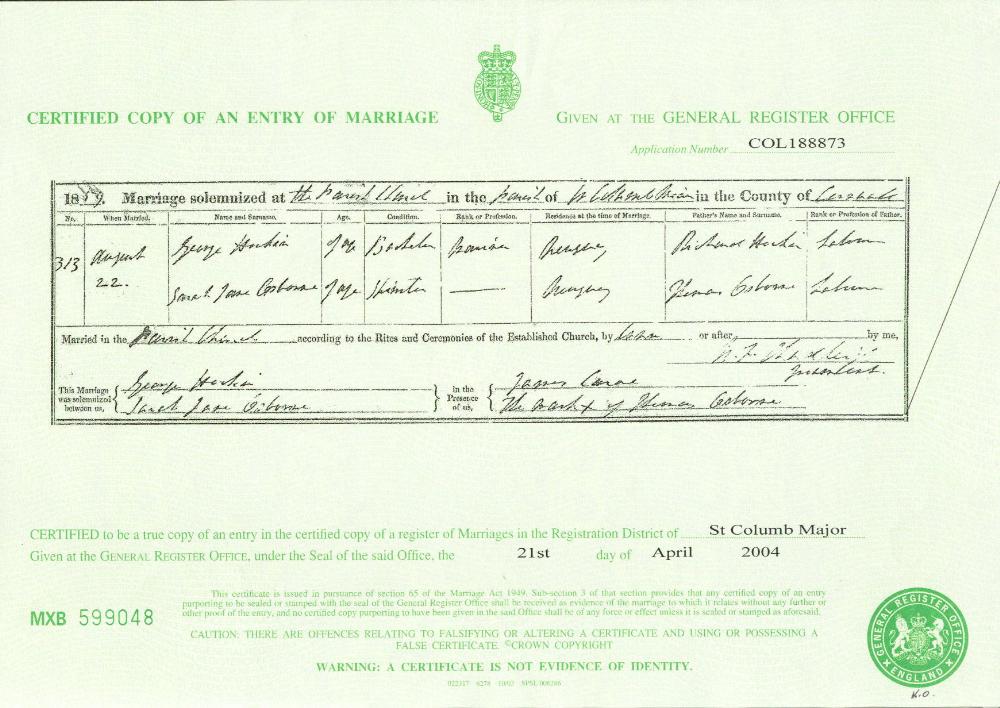 CERTIFIED COPY OF AN ENTRY OF MARRIAGE
GIVEN AT THE GENERAL REGISTER OFFICE
Application Number COL188873
Marriage solemnized at the Parish Church in the Parish of in the County of Cornwall
No. When Married. Name and Surname. Age. Condition. Rank or Profession. Residence at the time of Marriage. Father's Name and Surname. Rank or Profession of Father.
313 August 22. George Hockin of age Bachelor Richard Hockin
Sarah Jane Osborne of age Spinster Thomas Osborne
Married in the Parish Church according to the Rites and Ceremonies of the Established Church, by or after by me,
This Marriage was solemnized between us, George Hockin Sarah Jane Osborne
In the Presence of us, James The mark x of Thomas Osborne
CERTIFIED to be a true copy of an entry in the certified copy of a register of Marriages in the Registration District of St Columb Major
Given at the GENERAL REGISTER OFFICE, under the Seal of the said Office, the 21st day of April 2004
MXB 599048
This certificate is issued in pursuance of section 65 of the Marriage Act 1949. Sub-section 3 of that section provides that any certified copy of an entry
purporting to be sealed or stamped with the seal of the General Register Office shall be received as evidence of the marriage to which it relates without any further or
other proof of the entry, and no certified copy purporting to have been given in the said Office shall be of any force or effect unless it is sealed or stamped as aforesaid.
CAUTION: THERE ARE OFFENCES RELATING TO FALSIFYING OR ALTERING A CERTIFICATE AND USING OR POSSESSING A
FALSE CERTIFICATE. ©CROWN COPYRIGHT
WARNING: A CERTIFICATE IS NOT EVIDENCE OF IDENTITY.
GENERAL REGISTER OFFICE
ENGLAND
K.O.